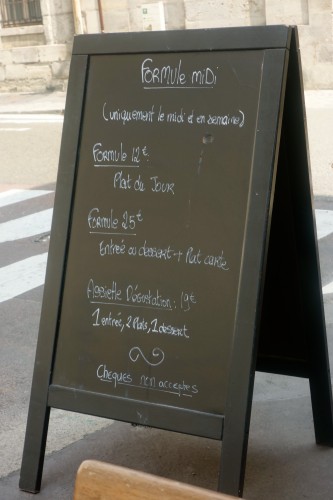 Formule midi
(uniquement le midi et en semaine)
Formule 12€:
Plat du Jour
Formule 25€
Entrée ou dessert + Plat carte
Assiette Dégustation: 19€
1 entrée, 2 Plats, 1 dessert
Chèques non acceptés